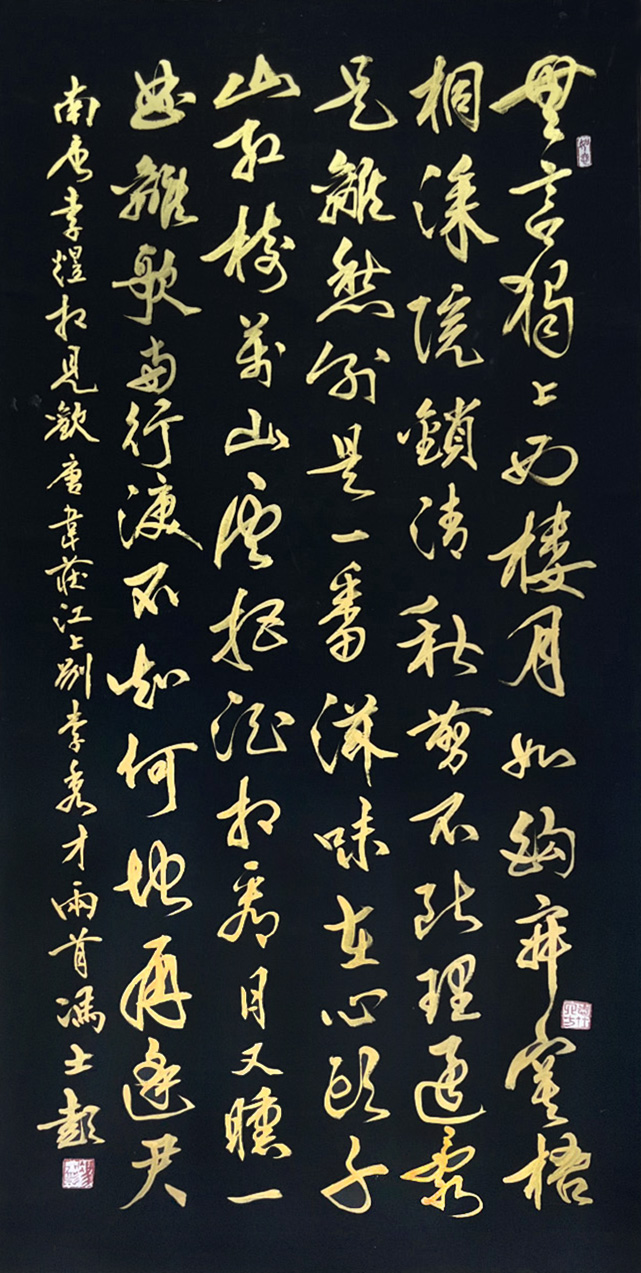 無言獨上西樓月如鉤寂寞梧
桐深院鎖清秋剪不斷理還亂
是離愁別是一番滋味在心頭千
山紅樹萬山雲把酒相看日又曛一
曲離歌兩行淚不知何地再逢君
南唐李煜相見歡唐韋莊江上別李秀才兩首馮士彭